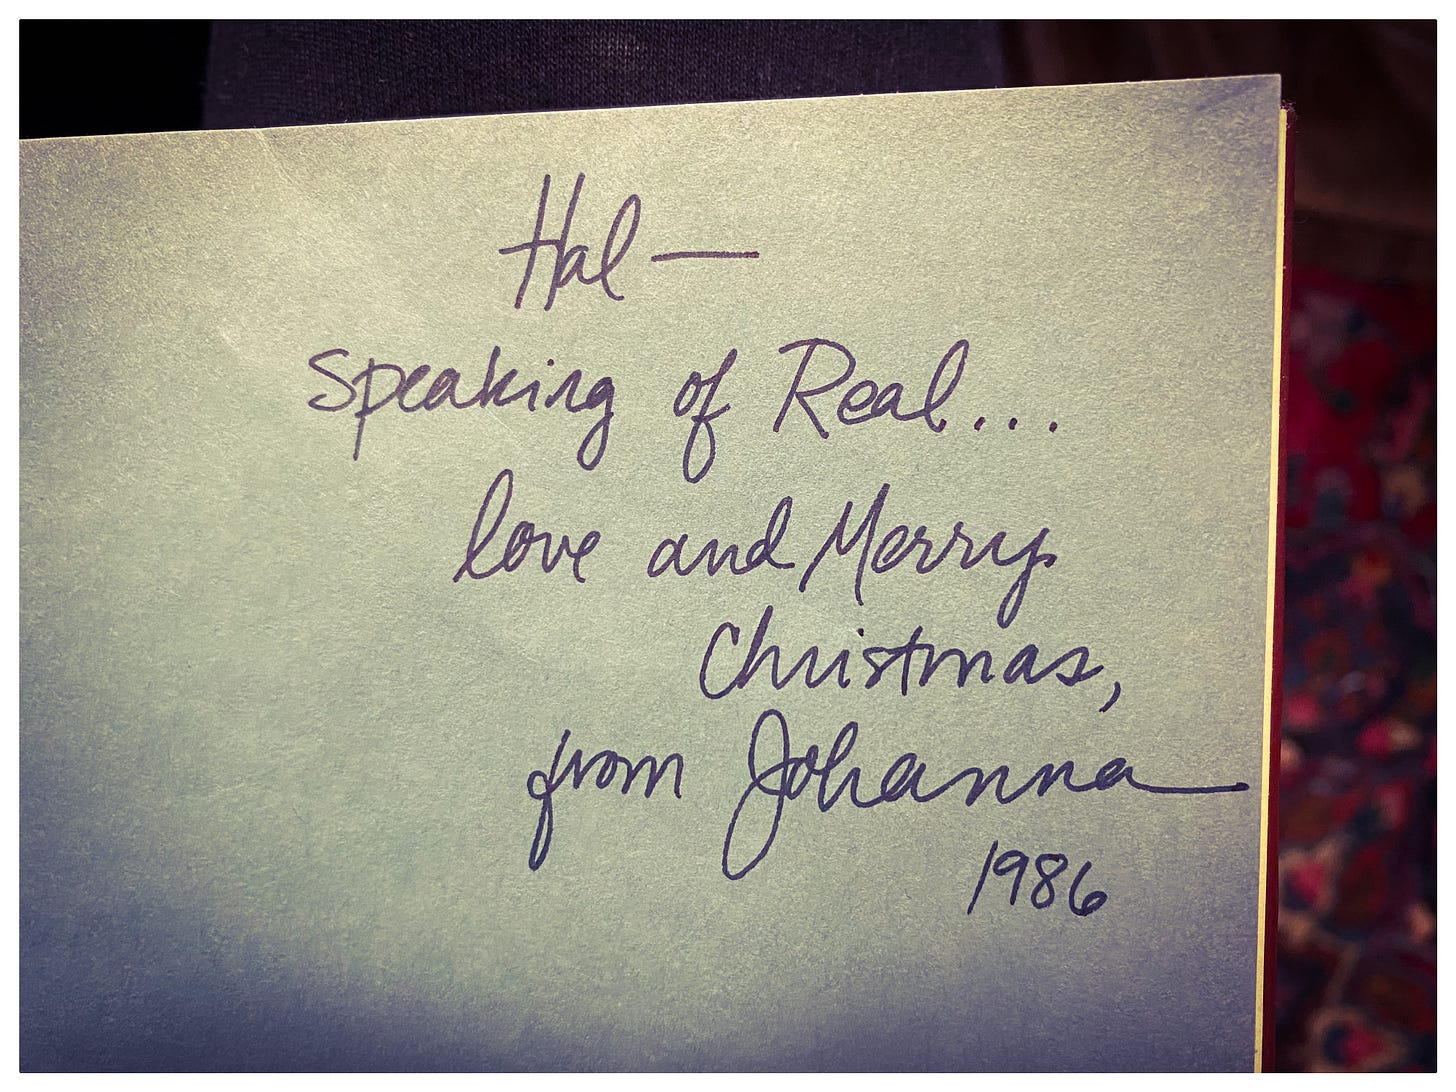 Hal —
Speaking of Real...
love and Merry
Christmas,
from Johanna
1986